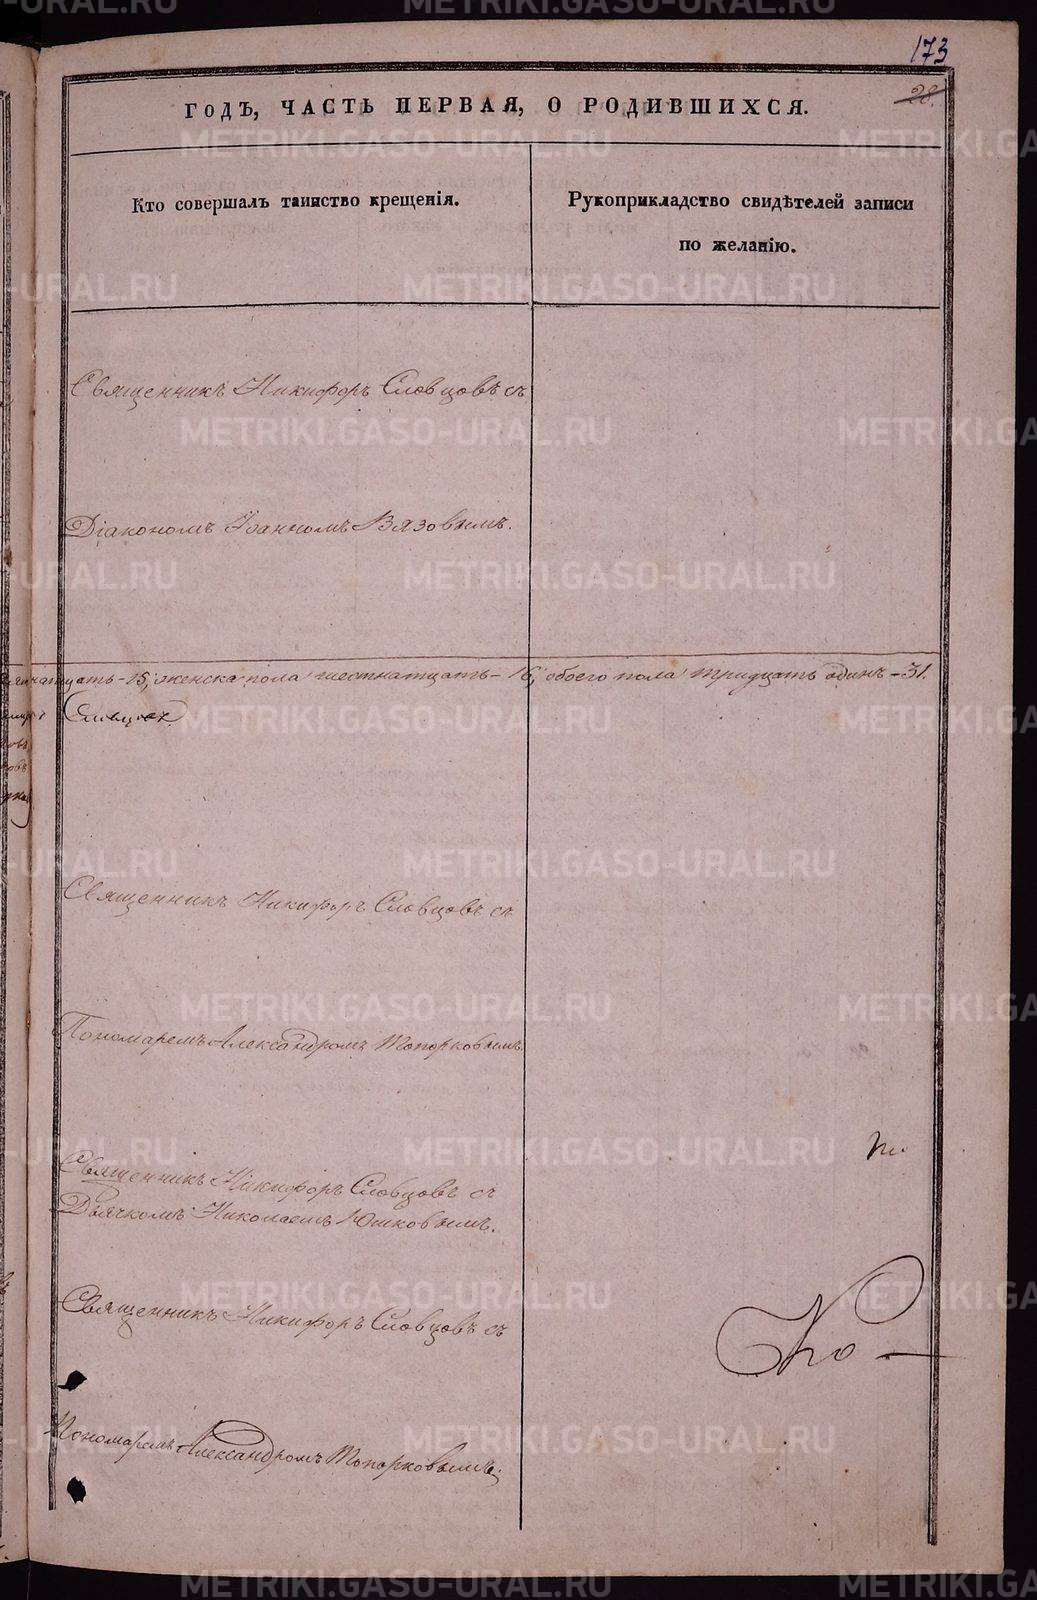 173
28.
ГОДЪ, ЧАСТЬ ПЕРВАЯ, О РОДИВШИХСЯ.
Кто совершалъ таинство крещенія.
Рукоприкладство свидѣтелей записи
по желанію.
Священникъ Никифоръ Словцовъ съ
Діакономъ Іоанномъ Вязовымъ.
натцать - 15, женска пола шестнатцать - 16, обоего пола тридцать одинъ - 31.
Словцовъ
Священникъ Никифоръ Словцовъ съ
Пономаремъ Александромъ Топорковымъ.
Священникъ Никифоръ Словцовъ съ
Дьячкомъ Николаемъ Юшковымъ.
Священникъ Никифоръ Словцовъ съ
по
Пономаремъ Александромъ Топорковымъ.
METRIKI.GASO-URAL.RU